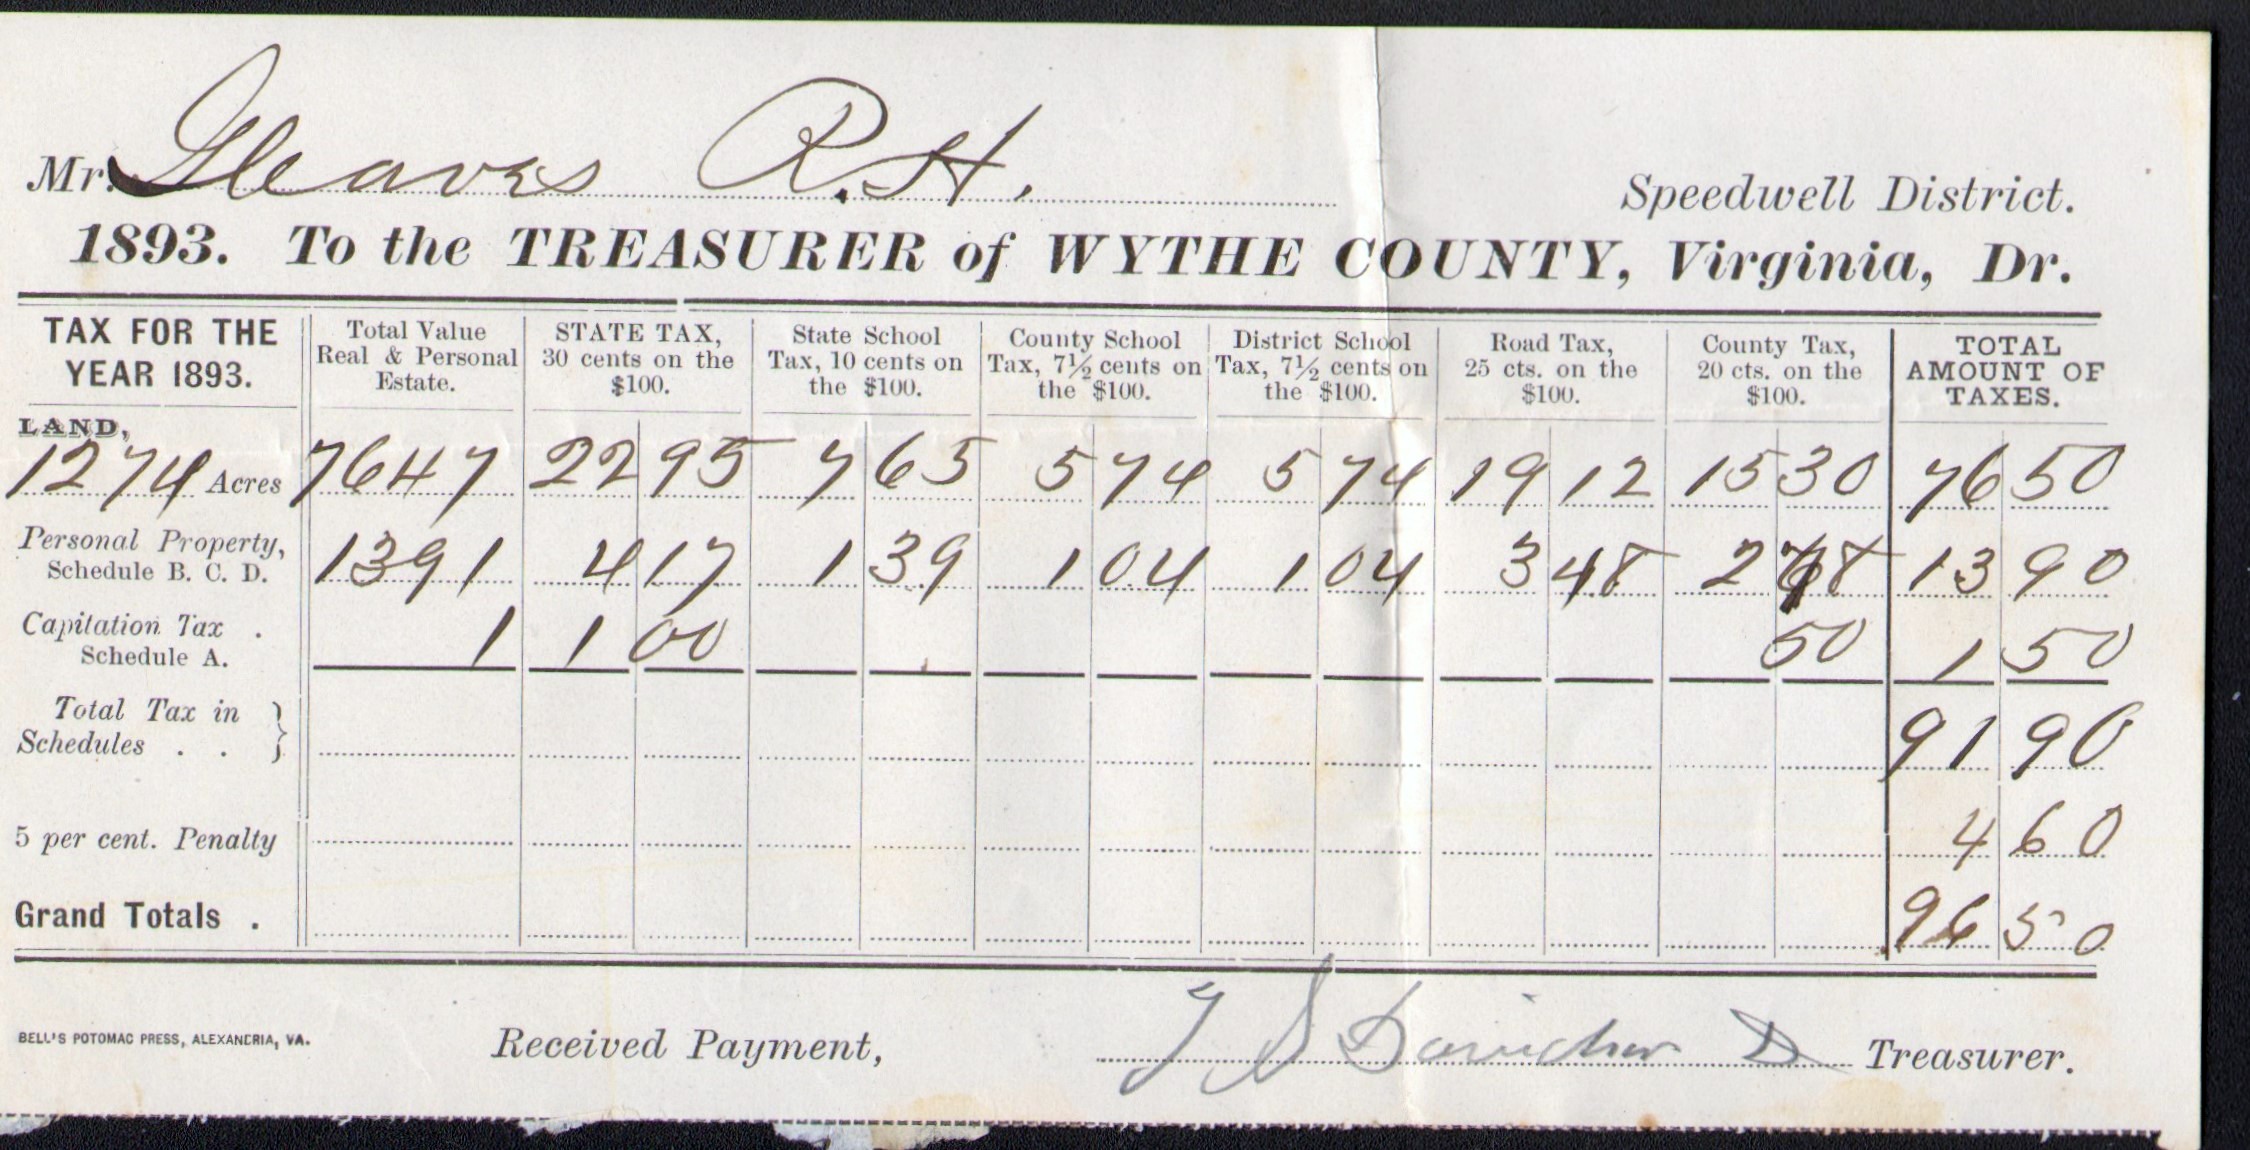 Mr. Gleaves R. H.
Speedwell District.
1893. To the TREASURER of WYTHE COUNTY, Virginia, Dr.
TAX FOR THE YEAR 1893. Total Value Real & Personal Estate. STATE TAX, 30 cents on the $100. State School Tax, 10 cents on the $100. County School Tax, 7½ cents on the $100. District School Tax, 7½ cents on the $100. Road Tax, 25 cts. on the $100. County Tax, 20 cts. on the $100. TOTAL AMOUNT OF TAXES.
LAND,
1274 Acres 7647 22 95 7 65 5 74 5 74 19 12 15 30 76 50
Personal Property, Schedule B. C. D. 1391 4 17 1 39 1 04 1 04 3 48 2 78 13 90
Capitation Tax . Schedule A. 1 1 00 50 1 50
Total Tax in Schedules . . } 91 90
5 per cent. Penalty 4 60
Grand Totals . 96 50
BELL'S POTOMAC PRESS, ALEXANDRIA, VA.
Received Payment, Treasurer.